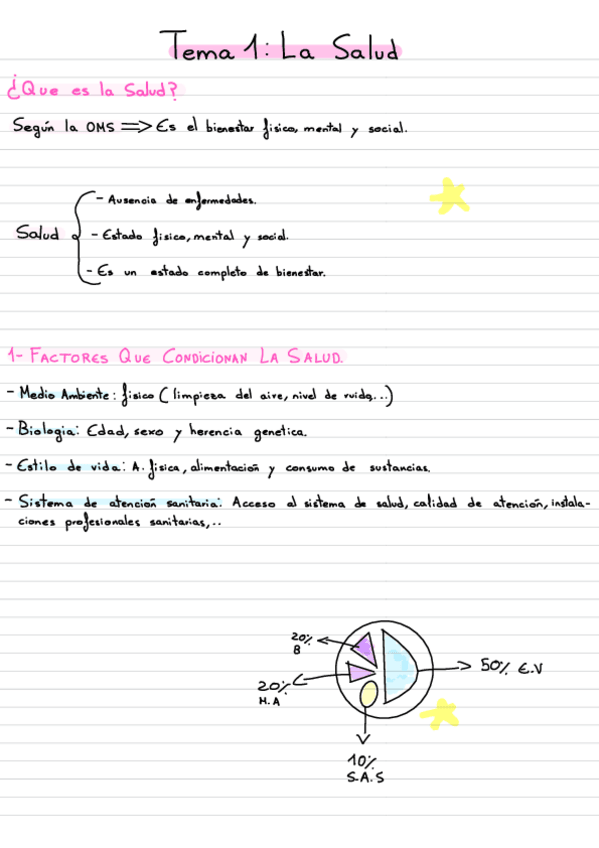 Tema 1: La Salud
¿Que es la Salud?
Según la OMS => Es el bienestar fisico, mental y social.
- Ausencia de enfermedades.
Salud - Estado fisico, mental y social.
- Es un estado completo de bienestar.
1- FACTORES QUE CONDICIONAN LA SALUD.
- Medio Ambiente: fisico (limpieza del aire, nivel de ruido,...)
- Biologia: Edad, sexo y herencia genetica.
- Estilo de vida: A. fisica, alimentación y consumo de sustancias.
- Sistema de atención sanitaria: Acceso al sistema de salud, calidad de atención, instala-
ciones profesionales sanitarias,..
20%
B
50% E.V
20%
M.A
10%
S.A.S